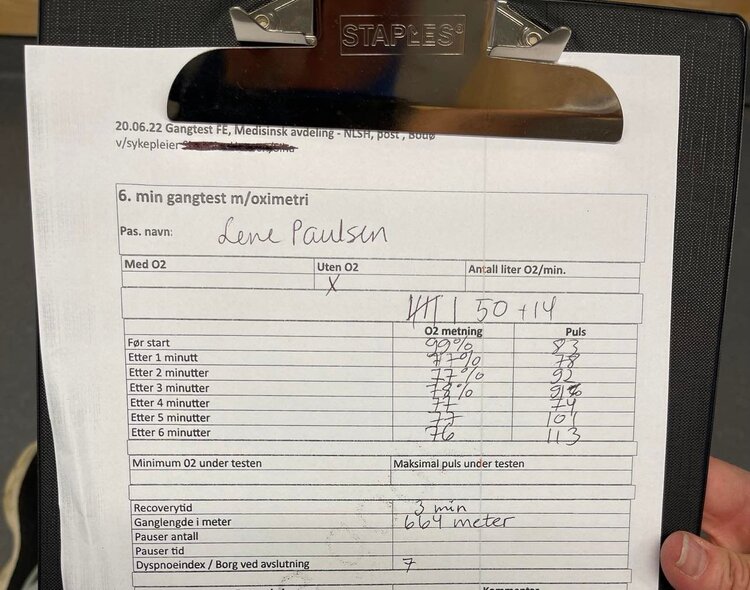 STAPLES®
20.06.22 Gangtest FE, Medisinsk avdeling - NLSH, post , Bodø
v/sykepleier
6. min gangtest m/oximetri
Pas. navn: Lene Paulsen
Med O2 Uten O2 Antall liter O2/min.
X
50 + 14
O2 metning Puls
Før start 99% 83
Etter 1 minutt 77% 78
Etter 2 minutter 77% 92
Etter 3 minutter 78%
Etter 4 minutter 77 74
Etter 5 minutter 77
Etter 6 minutter 76 113
Minimum O2 under testen Maksimal puls under testen
Recoverytid 3 min
Ganglengde i meter 664 meter
Pauser antall
Pauser tid
Dyspnoeindex / Borg ved avslutning 7
Kommentar